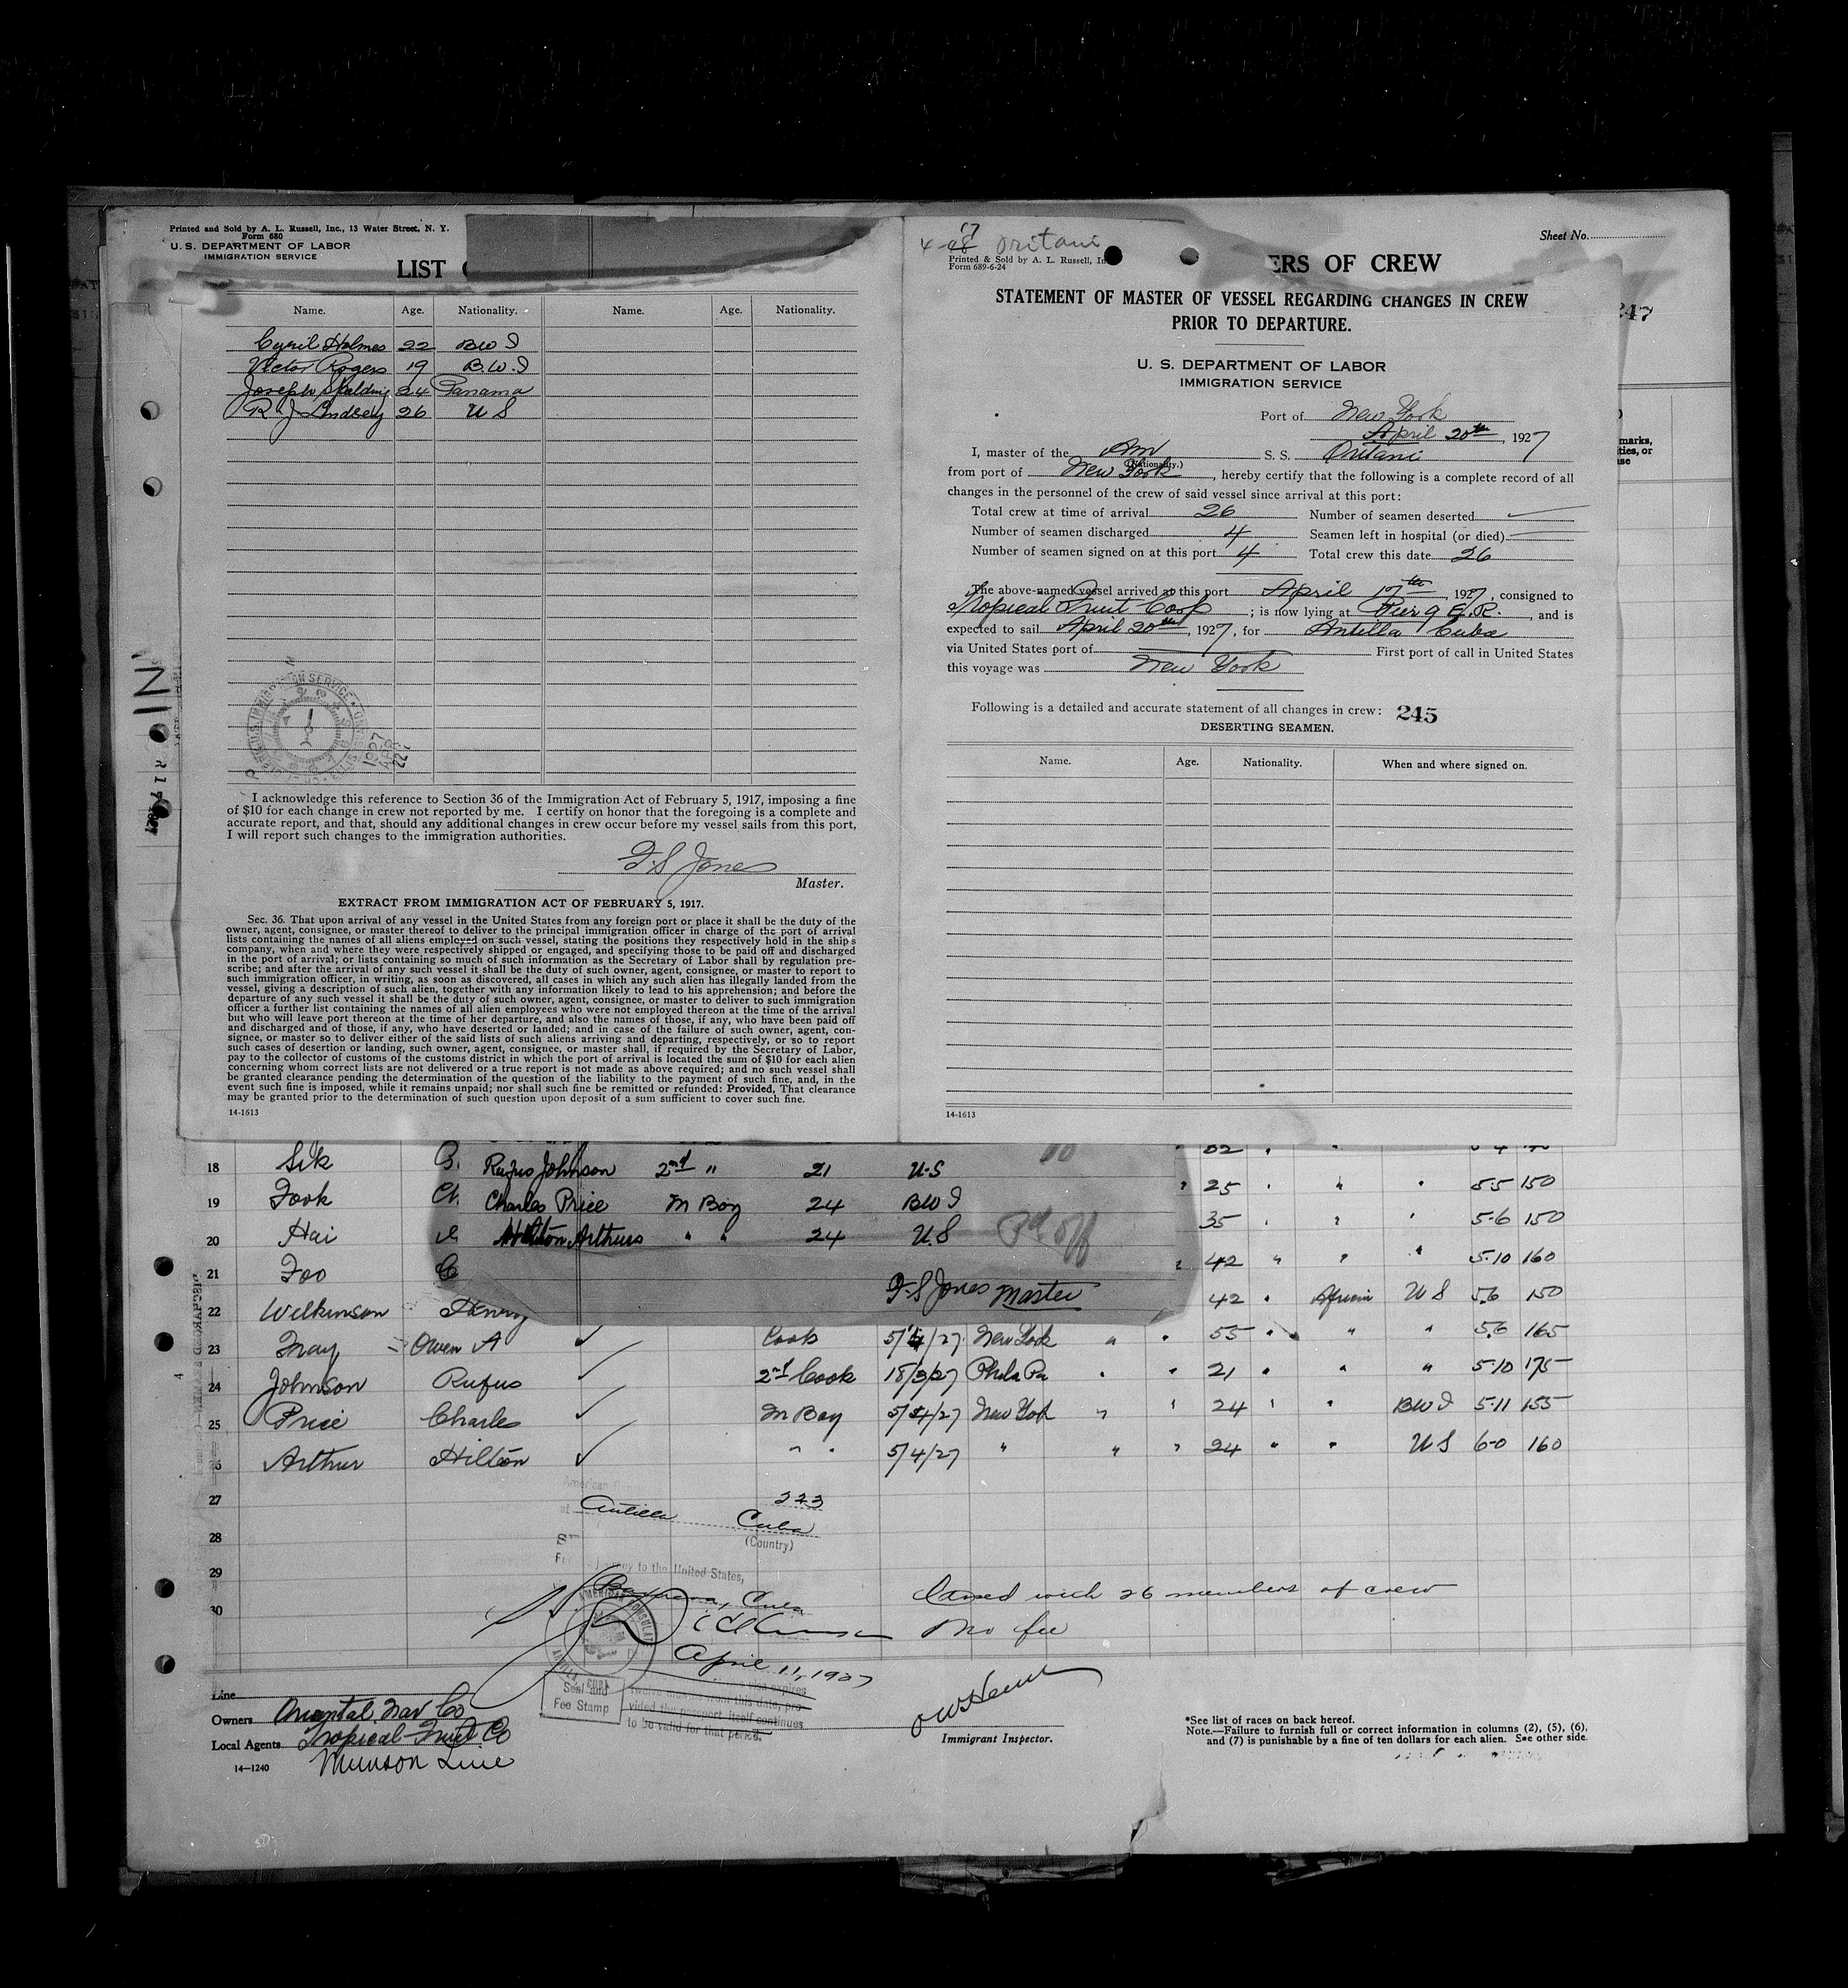 Printed and Sold by A. L. Russell, Inc., 13 Water Street, N. Y.
Form 680
U. S. DEPARTMENT OF LABOR
IMMIGRATION SERVICE
LIST
Name. Age. Nationality. Name. Age. Nationality.
Cyril Holmes 22 BWI
Victor Rogers 19 B.W.I
Joseph Spalding 24 Panama
R J Lindsey 26 U S
I acknowledge this reference to Section 36 of the Immigration Act of February 5, 1917, imposing a fine
of $10 for each change in crew not reported by me. I certify on honor that the foregoing is a complete and
accurate report, and that, should any additional changes in crew occur before my vessel sails from this port,
I will report such changes to the immigration authorities.
F.S Jones
Master.
EXTRACT FROM IMMIGRATION ACT OF FEBRUARY 5, 1917.
Sec. 36. That upon arrival of any vessel in the United States from any foreign port or place it shall be the duty of the
owner, agent, consignee, or master thereof to deliver to the principal immigration officer in charge of the port of arrival
lists containing the names of all aliens employed on such vessel, stating the positions they respectively hold in the ship's
company, when and where they were respectively shipped or engaged, and specifying those to be paid off and discharged
in the port of arrival; or lists containing so much of such information as the Secretary of Labor shall by regulation pre-
scribe; and after the arrival of any such vessel it shall be the duty of such owner, agent, consignee, or master to report to
such immigration officer, in writing, as soon as discovered, all cases in which any such alien has illegally landed from the
vessel, giving a description of such alien, together with any information likely to lead to his apprehension; and before the
departure of any such vessel it shall be the duty of such owner, agent, consignee, or master to deliver to such immigration
officer a further list containing the names of all alien employees who were not employed thereon at the time of the arrival
but who will leave port thereon at the time of her departure, and also the names of those, if any, who have been paid off
and discharged and of those, if any, who have deserted or landed; and in case of the failure of such owner, agent, con-
signee, or master so to deliver either of the said lists of such aliens arriving and departing, respectively, or so to report
such cases of desertion or landing, such owner, agent, consignee, or master shall, if required by the Secretary of Labor,
pay to the collector of customs of the customs district in which the port of arrival is located the sum of $10 for each alien
concerning whom correct lists are not delivered or a true report is not made as above required; and no such vessel shall
be granted clearance pending the determination of the question of the liability to the payment of such fine, and, in the
event such fine is imposed, while it remains unpaid; nor shall such fine be remitted or refunded: Provided, That clearance
may be granted prior to the determination of such question upon deposit of a sum sufficient to cover such fine.
14-1613
17
4-18 Oritani
Printed & Sold by A. L. Russell, In
Form 689-6-24
Sheet No.
ERS OF CREW
STATEMENT OF MASTER OF VESSEL REGARDING CHANGES IN CREW
PRIOR TO DEPARTURE.
U. S. DEPARTMENT OF LABOR
IMMIGRATION SERVICE
Port of New York
April 20th, 1927
I, master of the Am S. S. Oritani
(Nationality.)
from port of New York, hereby certify that the following is a complete record of all
changes in the personnel of the crew of said vessel since arrival at this port:
Total crew at time of arrival 26 Number of seamen deserted
Number of seamen discharged 4 Seamen left in hospital (or died)
Number of seamen signed on at this port 4 Total crew this date 26
The above-named vessel arrived at this port April 17th, 1927, consigned to
Tropical Fruit Corp; is now lying at Pier 9 E.R., and is
expected to sail April 20th, 1927, for Antilla Cuba
via United States port of First port of call in United States
this voyage was New York
Following is a detailed and accurate statement of all changes in crew: 245
DESERTING SEAMEN.
Name. Age. Nationality. When and where signed on.
14-1613
247
marks,
ties, or
se
Rufus Johnson 2nd " 21 U-S
Charles Price M Boy 24 BWI
Hilton Arthurs " " 24 U.S
F-S Jones Master
18 Sik
19 Fook 25 " " 5-5 150
20 Hai 35 " " 5-6 150
21 Foo 42 " " " 5-10 160
22 Wilkinson Henry 42 " African U S 5-6 150
23 May Owen A Cook 5/4/27 New York " " 55 " " " 5-6 165
24 Johnson Rufus 2nd Cook 18/3/27 Phila Pa " " 21 " " " 5-10 175
25 Price Charles M Boy 5/4/27 New York " " 24 " " BWI 5-11 155
26 Arthur Hilton " " 5/4/27 " " " 24 " " U S 6-0 160
27
28
29
30
American
223
Antilla Cuba
(Country)
to the United States,
April 11, 1927
Seal and
Fee Stamp
twelve months from this date, pro-
vided the passport itself continues
to be valid for that period.
Closed with 26 members of crew
No fee
Line
Owners Oriental Nav Co
Local Agents Tropical Fruit Co
Munson Line
14—1240
Immigrant Inspector.
*See list of races on back hereof.
Note.—Failure to furnish full or correct information in columns (2), (5), (6),
and (7) is punishable by a fine of ten dollars for each alien. See other side.